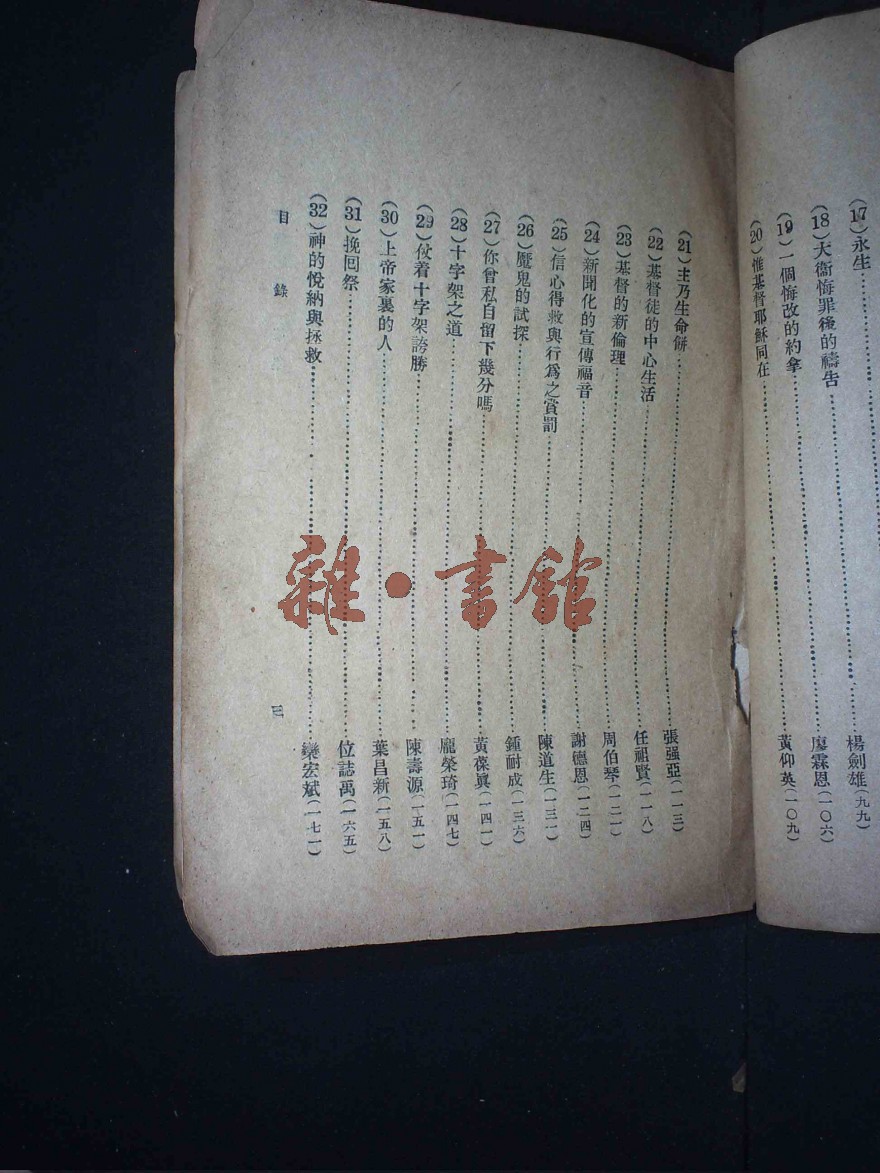 (17)永生……楊劍雄(九九)
(18)大衞悔罪後的禱告……廖霖恩(一〇六)
(19)一個悔改的約拿……黃仰英(一〇九)
(20)惟基督耶穌同在……
(21)主乃生命餅……張强亞(一一三)
(22)基督徒的中心生活……任祖賢(一一八)
(23)基督的新倫理……周伯琴(一二一)
(24)新聞化的宣傳福音……謝德恩(一二四)
(25)信心得救與行爲之賞罰……陳道生(一三一)
(26)魔鬼的試探……鍾耐成(一三六)
(27)你曾私自留下幾分嗎……黃葆眞(一四一)
(28)十字架之道……龐榮琦(一四七)
(29)仗着十字架誇勝……陳壽源(一五一)
(30)上帝家裏的人……葉昌新(一五八)
(31)挽回祭……位誌禹(一六五)
(32)神的悅納與拯救……欒宏斌(一七一)
目錄
雜·書館